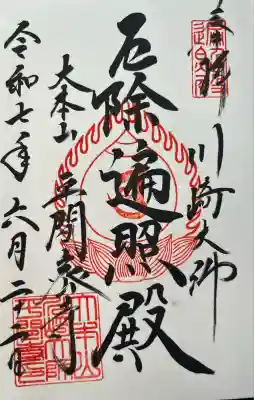 奉拝 川崎大師
厄除遍照殿
大本山 平間寺
令和七年六月二十二日